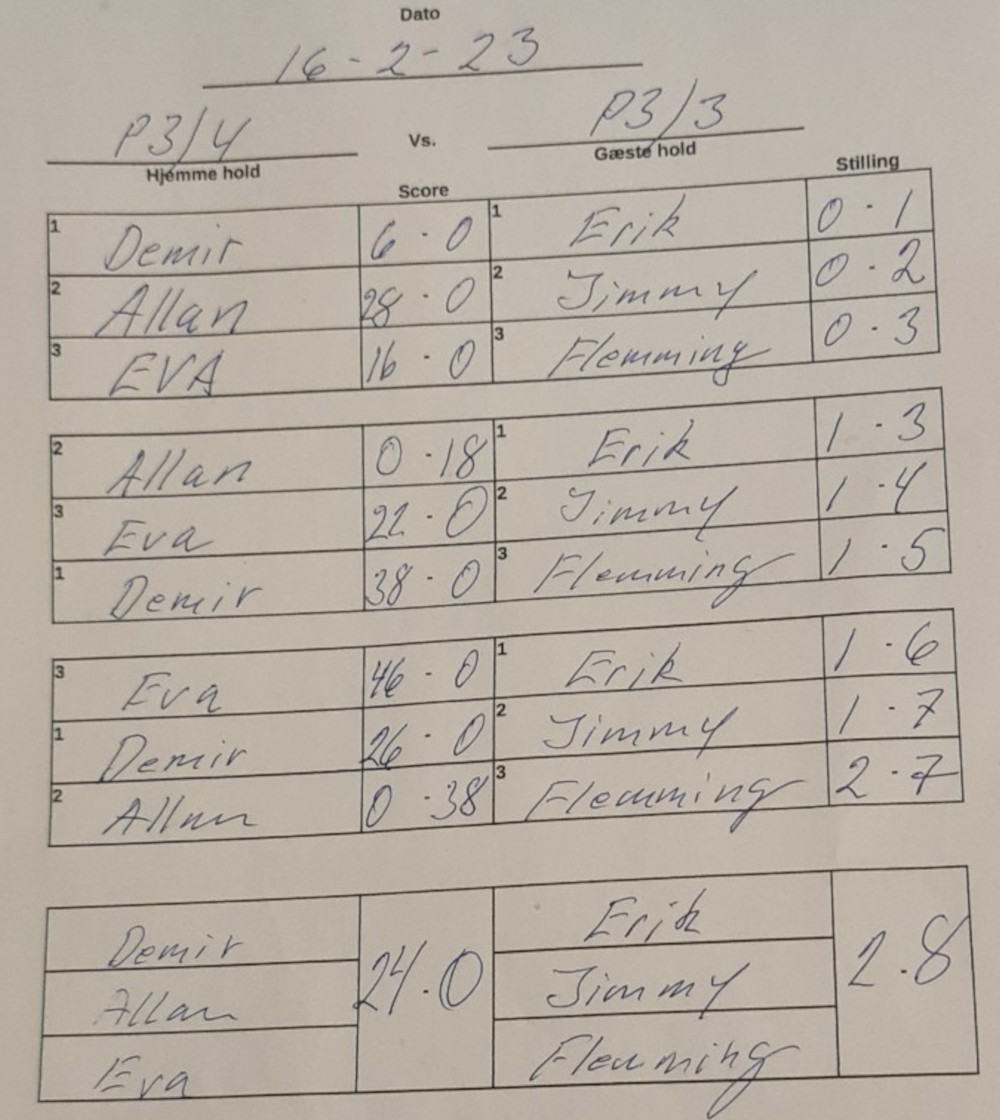 Dato
16-2-23
P3/4 Vs. P3/3
Hjemme hold Gæste hold
Score Stilling
1 Demir 6·0 1 Erik 0·1
2 Allan 28·0 2 Jimmy 0·2
3 EVA 16·0 3 Flemming 0·3
2 Allan 0·18 1 Erik 1·3
3 Eva 22·0 2 Jimmy 1·4
1 Demir 38·0 3 Flemming 1·5
3 Eva 46·0 1 Erik 1·6
1 Demir 26·0 2 Jimmy 1·7
2 Allan 0·38 3 Flemming 2·7
Demir Erik
Allan 24.0 Jimmy 2.8
Eva Flemming